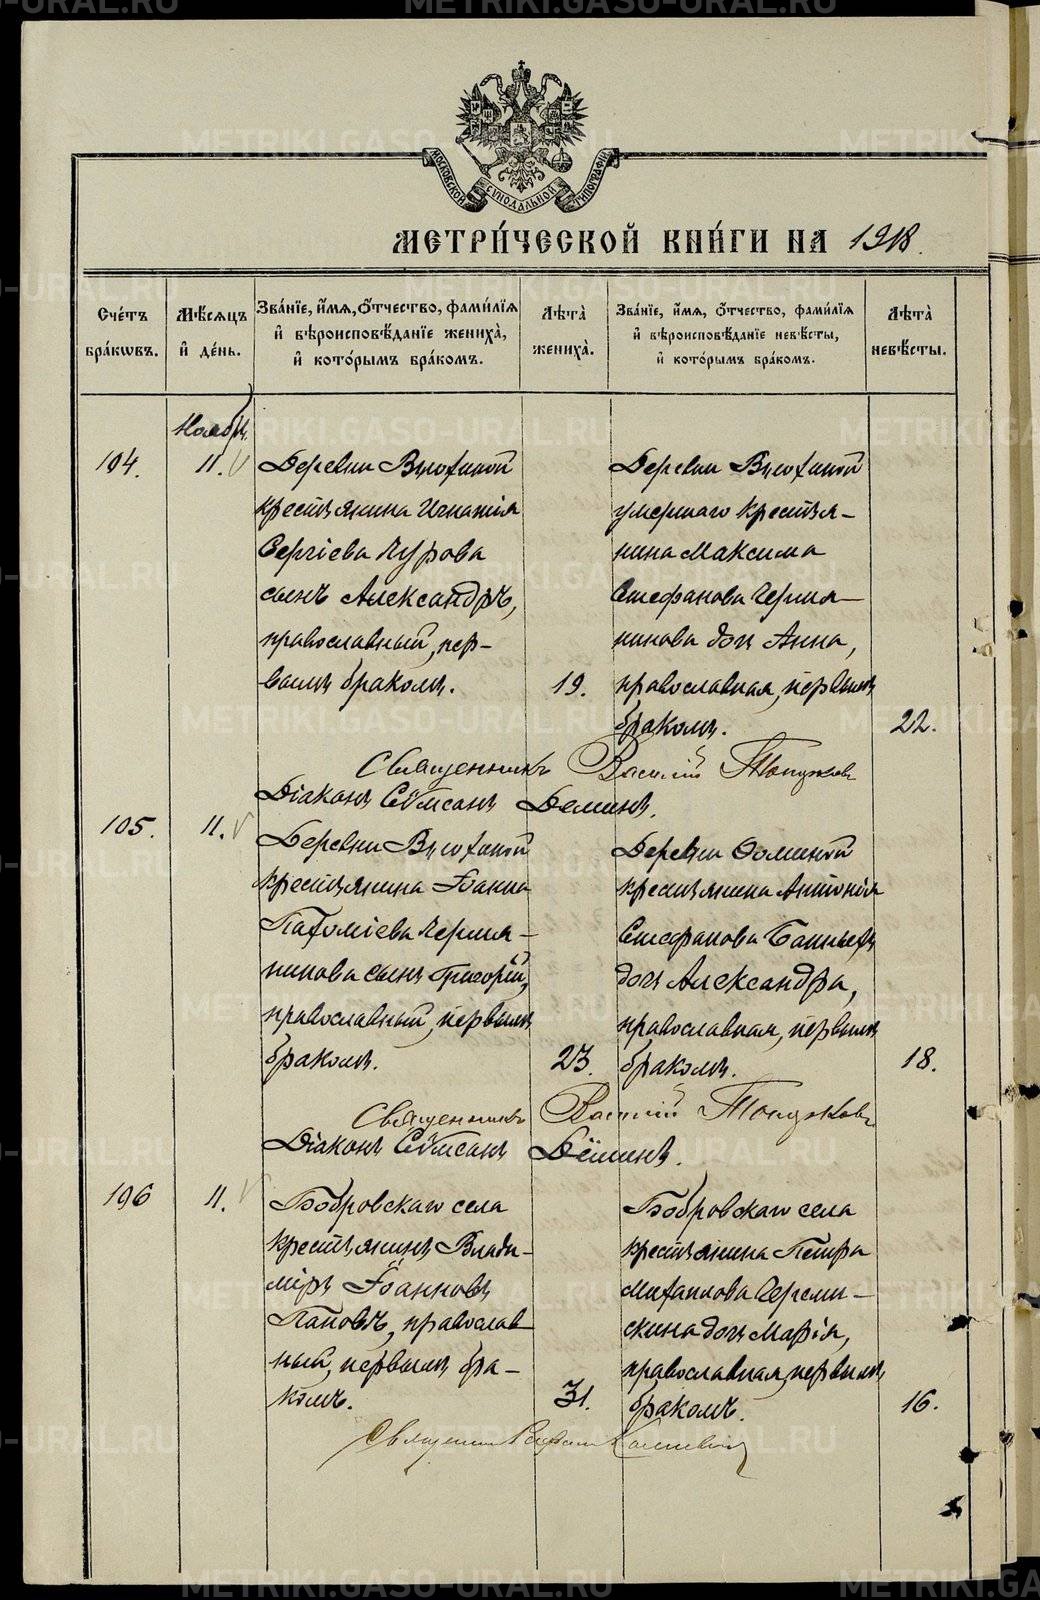 МОСКОВСКОЙ СѴНОДАЛЬНОЙ ТИПОГРАФІИ
МЕТРИ́ЧЕСКОЙ КНИ́ГИ НА 1918.
Сче́тъ бра́кωвъ.
Мѣ́сяцъ и҆ де́нь.
Зва́нїе, и҆́мя, ѻ҆́тчество, фами́лїя и҆ вѣроисповѣ́данїе жениха̀, и҆ кото́рымъ бра́комъ.
Лѣ́та̀ жениха̀.
Зва́нїе, и҆́мя, ѻ҆́тчество, фами́лїя и҆ вѣроисповѣ́данїе невѣ́сты, и҆ кото́рымъ бра́комъ.
Лѣ́та̀ невѣ́сты.
Ноябр.
104. 11.
Деревни Вьюхиной
крестьянина Игнатія
Сергіева Чурова
сынъ Александръ,
православный, пер-
вымъ бракомъ.
19.
Деревни Вьюхиной
умершаго крестья-
нина Максима
Стефанова Чермя-
нинова дочь Анна,
православная, первымъ
бракомъ.
22.
Священникъ Василій
Діаконъ Сѵмеонъ Деминъ.
105. 11.
Деревни Вьюхиной
крестьянина Іоанна
Пахоміева Чермя-
нинова сынъ Григорій,
православный, первымъ
бракомъ.
23.
Деревни Фоминой
крестьянина Антонія
Стефанова Банныхъ
дочь Александра,
православная, первымъ
бракомъ.
18.
Священникъ Василій
Діаконъ Сѵмеонъ Дёминъ.
196 11.
Бобровскаго села
крестьянинъ Влади-
міръ Іоанновъ
Паповъ, православ-
ный, первымъ бра-
комъ.
31.
Бобровскаго села
крестьянина Петра
Михаилова Череми-
скина дочь Марія,
православная, первымъ
бракомъ.
16.
METRIKI.GASO-URAL.RU